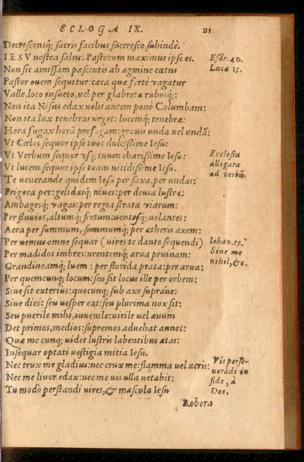 ECLOGA IX. 21
Decrescensq́; sacris facibus succresco subindè.
IESV nostra salus: Pastorum maximus ipse es. Esdr. 40.
Non sic amissam pascentis ab agmine cœtus Lucæ 15.
Pastor ouem sequitur: cæca quæ fortè vagatur
Valle, loco insueto, vel per glabreta
Non ita Nisus edax volitantem ponè Columbam:
Non ita lux tenebras vrget: lucemq́; tenebræ:
Hora fugax horã grauis unda vel undã:
Vt Cœlos sequor ipse tuos dulcissime Iesu:
Vt Verbum sequor usq́; tuum charissime Iesu: Ecclesia
Vt lucem sequor ipse tuam nitidissime Iesu. alligata
Te venerande quidem Iesu per saxa, per undas: ad verbũ.
Frigora per: gelidasq́; niues: per deuia lustra:
Ambagesq́; vagas: per regia strata viarum:
Per fluuios, altumq́; fretum: uentosq́; uolantes:
Aera per summum, summumq́; per ætheris axem:
Per uemus omne sequar (uires te dante sequendi) Iohan. 15.
Per madidos imbres: urentemq́; arua pruinam: Sine me
Grandineamq́; luem: per florida prata: per arua: nihil, &c.
Per quemcunq́; locum: seu sit locus ille per orbem:
Siue sit exterius: quocunq́; sub axe supráue:
Siue diei: seu vesper eat: seu plurima nox sit:
Seu puerile mihi, iuuenile: uirile uel æuum
Det primos, medios: supremos aduehat annos:
Quæ me cunq́; uidet lustris labentibus ætas:
Insequar optati uestigia mitia Iesu.
Nec trux me gladius: nec crux me: flamma uel acris: Vis perse-
Nec me liuor edax: nec me uis ulla vetabit: uerãdi in
Tu modo perstandi uires, & mascula Iesu fide, à
Deo.
Robora